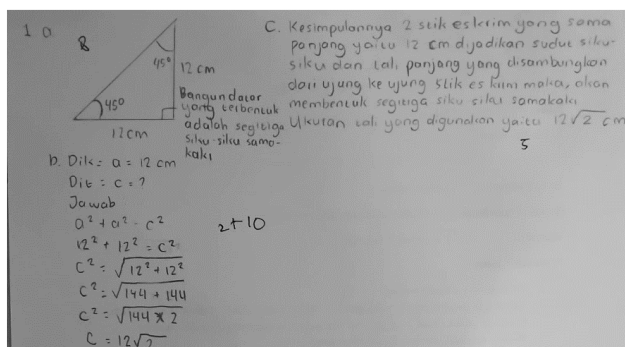 1 a.
8
45°
12 cm
45°
12 cm
Bangun datar
yang terbentuk
adalah segitiga
siku-siku sama-
kaki
b. Dik : a = 12 cm
Dit : c = ?
Jawab
a² + a² = c²
12² + 12² = c²
c² = √12² + 12²
c² = √144 + 144
c² = √144 x 2
C = 12√2
2+10
C. Kesimpulannya 2 stik eskrim yang sama
panjang yaitu 12 cm dijadikan sudut siku-
siku dan tali panjang yang disambungkan
dari ujung ke ujung stik es krim maka, akan
membentuk segitiga siku siku samakaki
Ukuran tali yang digunakan yaitu 12√2 cm
5